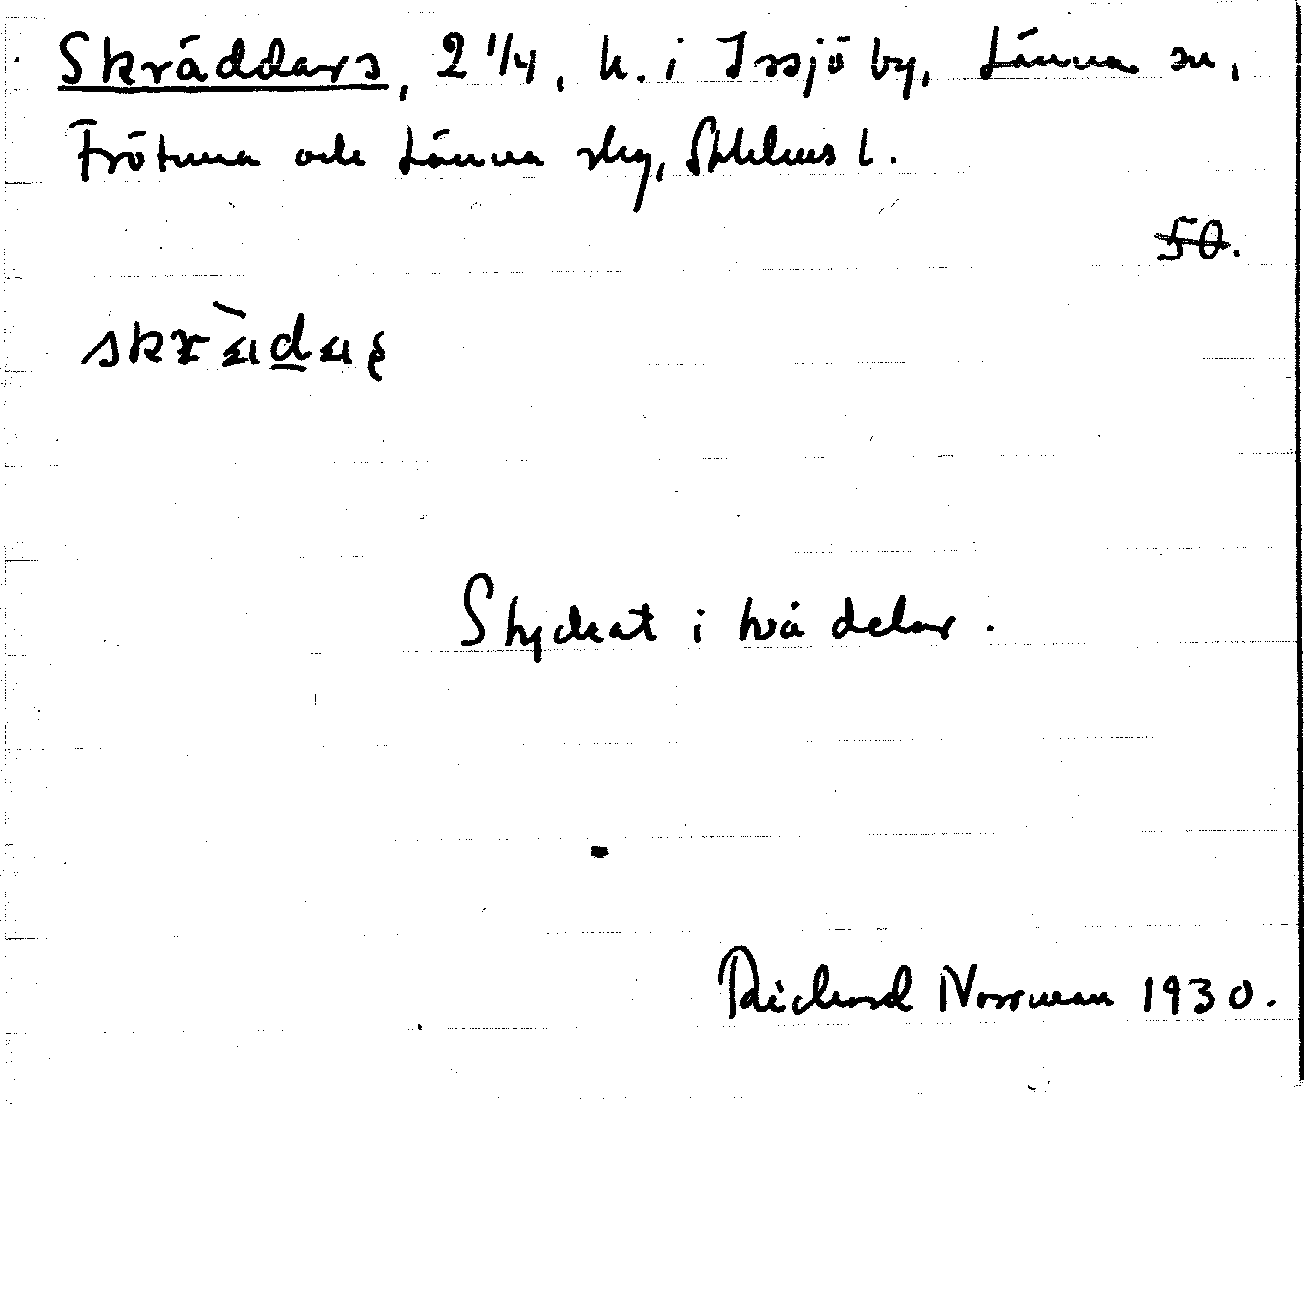 Skräddars, 2 1/4, h. i Issjö by, Länna sn,
Frötuna och Länna skg, Sthlms l.
50.
skr
Styckat i två delar.
Rickard Norrman 1930.